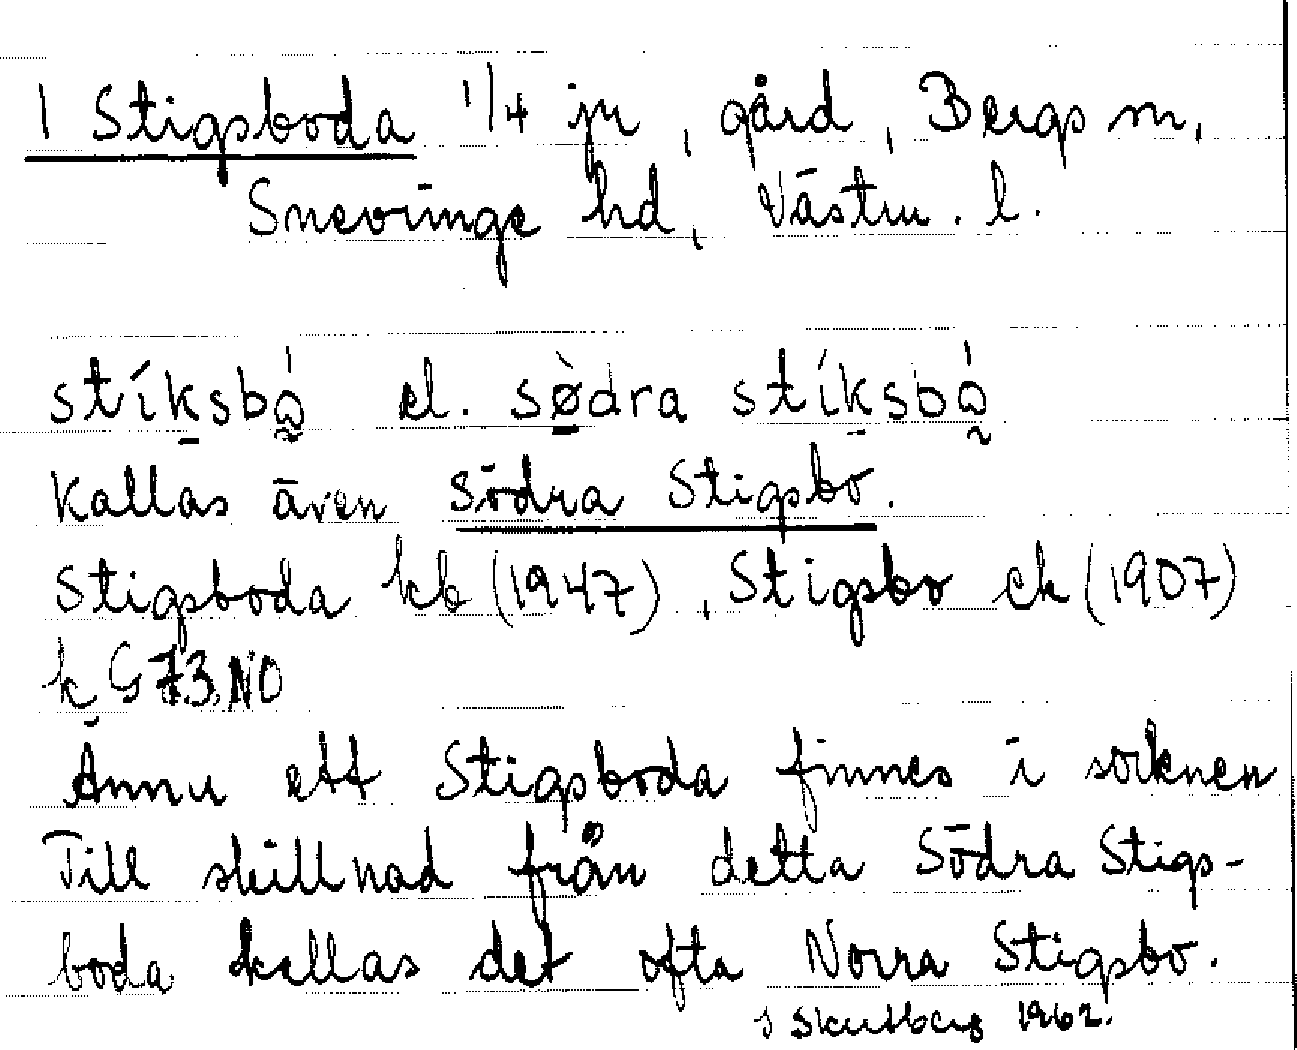 1 Stigsboda 1/4 jn, gård, Bergs sn,
Snevringe hd, Västm. l.
stíksbǫ̀ el. sødra stíksbǫ̀
Kallas även Södra Stigsbo.
Stigsboda kb (1947), Stigsbo ek (1907)
k G 73 NO
Ännu ett Stigsboda finnes i socknen
Till skillnad från detta Södra Stigs-
boda kallas det ofta Norra Stigsbo.
1962.